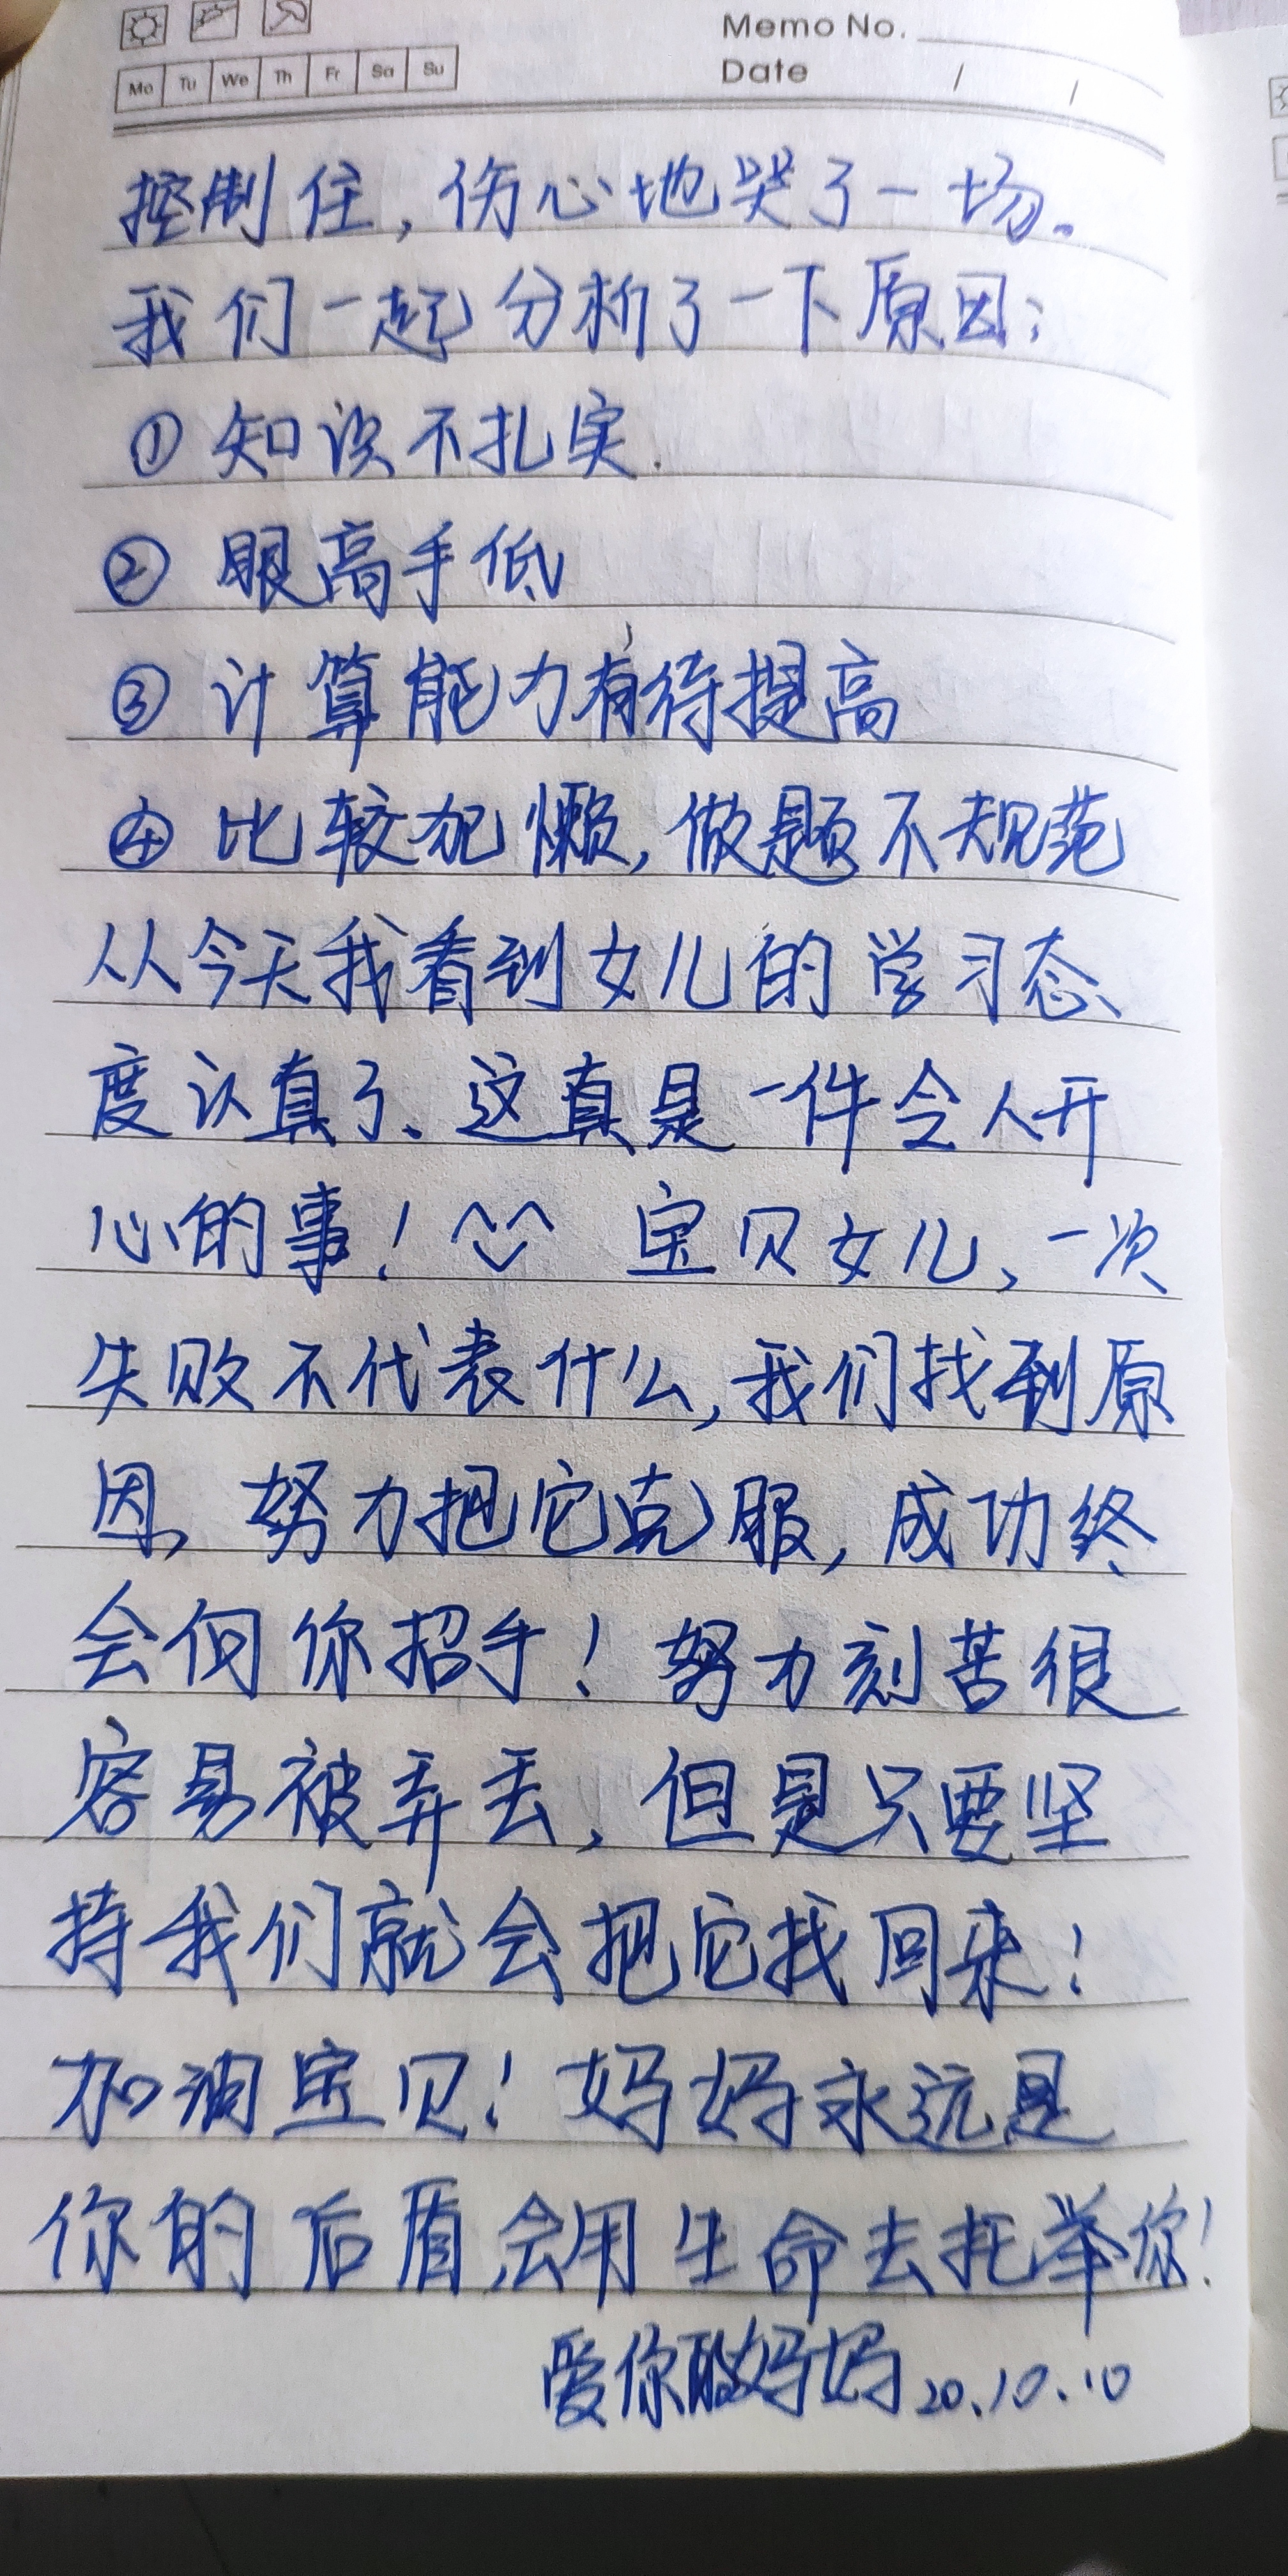 Memo No.
Mo Tu We Th Fr Sa Su
Date / /
控制住，伤心地哭了一场。
我们一起分析了一下原因：
① 知识不扎实.
② 眼高手低
③ 计算能力有待提高
④ 比较犯懒，做题不规范
从今天我看到女儿的学习态
度认真了、这真是一件令人开
心的事！ 宝贝女儿、一次
失败不代表什么，我们找到原
因，努力把它克服，成功终
会向你招手！努力刻苦很
容易被弄丢，但是只要坚
持我们就会把它找回来！
加油宝贝！妈妈永远是
你的后盾，会用生命去托举你！
爱你的妈妈 20.10.10